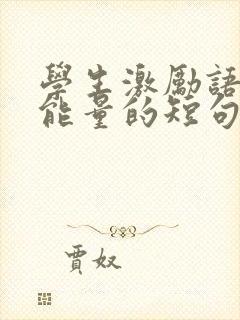 學生激勵語
能量的短句
賈奴